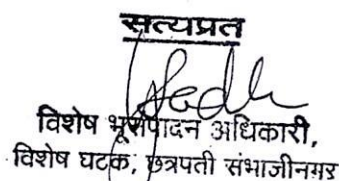 सत्यप्रत
विशेष भूसंपादन अधिकारी,
विशेष घटक, छत्रपती संभाजीनगर